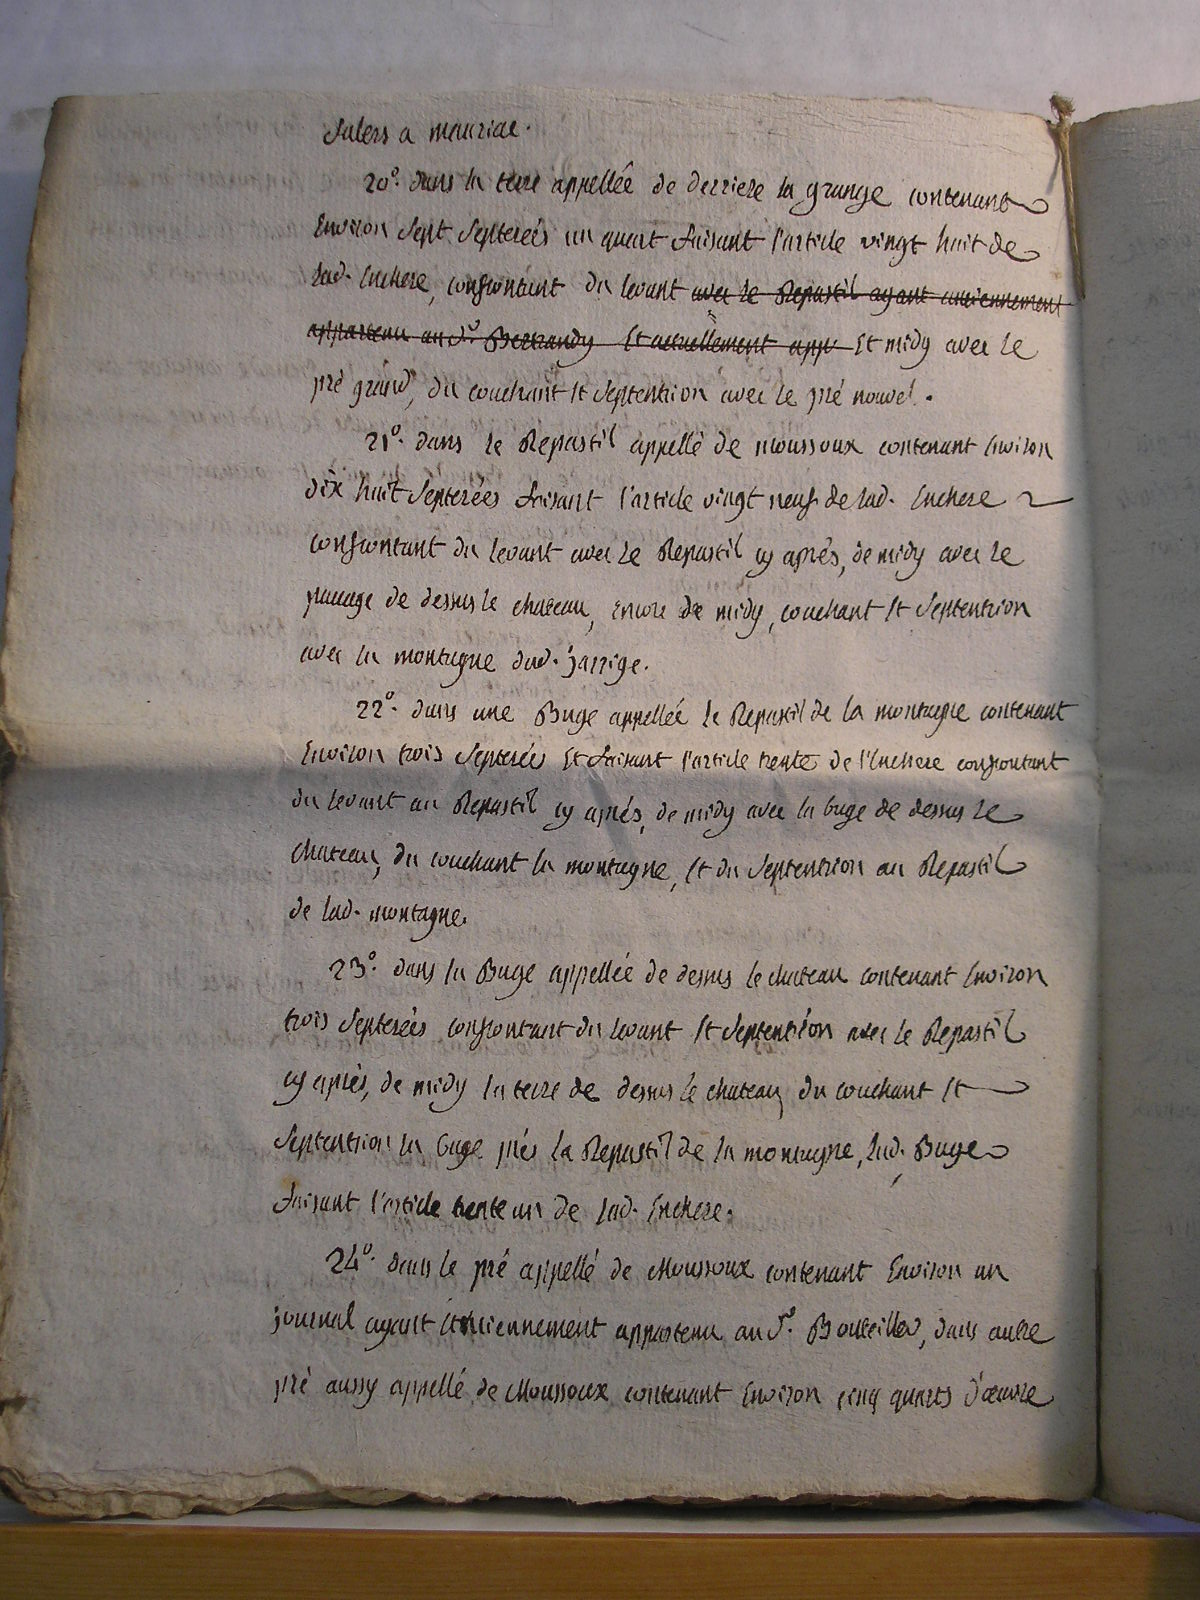 Salers a mauriac.
20°. dans la terre appellée de derriere la grange contenant
Environ sept septerées un quart faisant l'article vingt huit de
lad. Enchere, confrontant du levant avec le Repastil ayant anciennement
appartenu au Sr. Bertrandy Et actuellement app Et midy avec le
pré grand, du couchant Et septentrion avec le pré nouvel.
21°. dans le Repastil appellé de moussoux contenant Environ
dix huit septerées faisant l'article vingt neuf de lad. Enchere
confrontant du levant avec le Repastil cy aprés, de midy avec le
pacage de dessus le chateau, Encore de midy, couchant Et septentrion
avec la montagne dud. jarrige.
22°. dans une Buge appellée le Repastil de la montagne contenant
Environ trois septerées Et faisant l'article trente de l'Enchere confrontant
du levant au Repastil cy aprés, de midy avec la buge de dessus le
chateau, du couchant la montagne, Et du septentrion au Repastil
de lad. montagne.
23°. dans la Buge appellée de dessus le chateau contenant Environ
trois septerées confrontant du levant Et septentrion avec le Repastil
cy aprés, de midy la terre de dessus le chateau du couchant Et
septentrion la buge prés le Repastil de la montagne, lad. Buge
faisant l'article trente un de lad. Enchere.
24°. dans le pré appellé de Moussoux contenant Environ un
journal ayant anciennement appartenu au Sr. Bouteiller, dans autre
pré aussy appellé de Moussoux contenant Environ cinq quarts d'œuvre